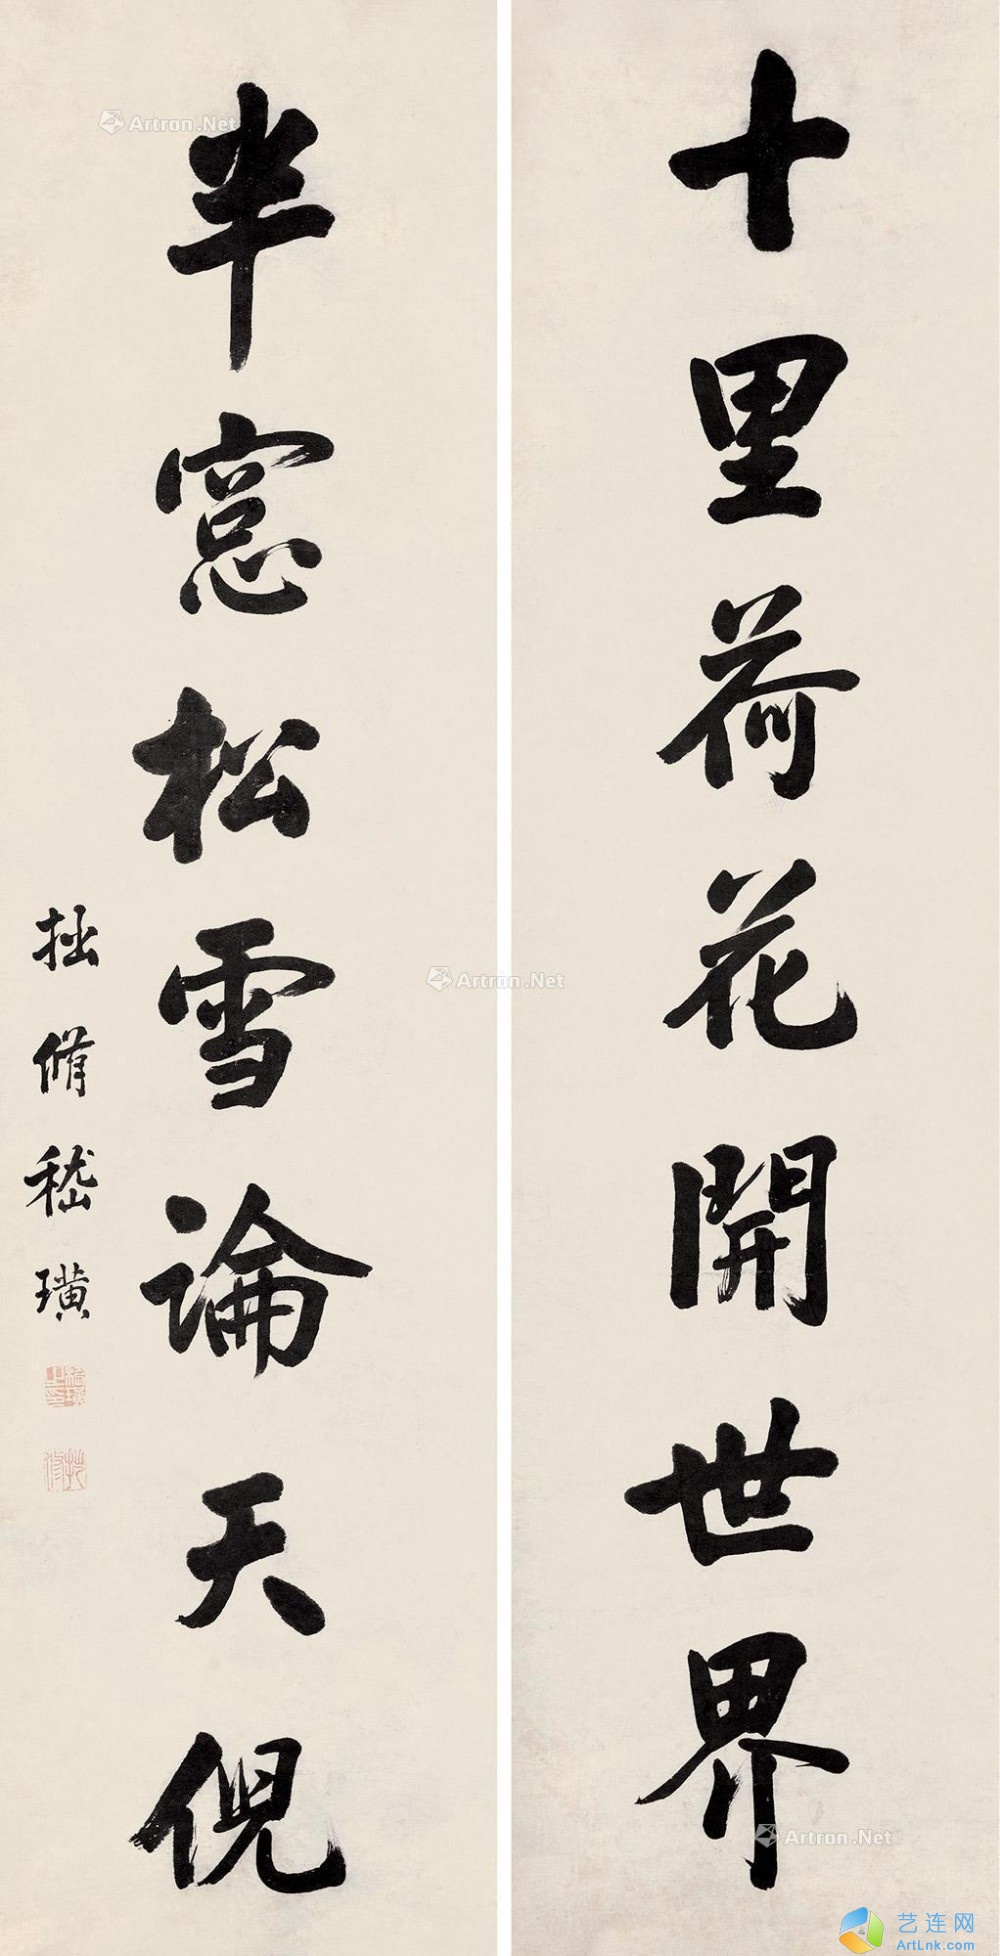 十里荷花開世界
半窓松雪論天倪
拙脩嵇璜
Artron.Net
Artron.Net
Artron.Net
艺连网
ArtLnk.com